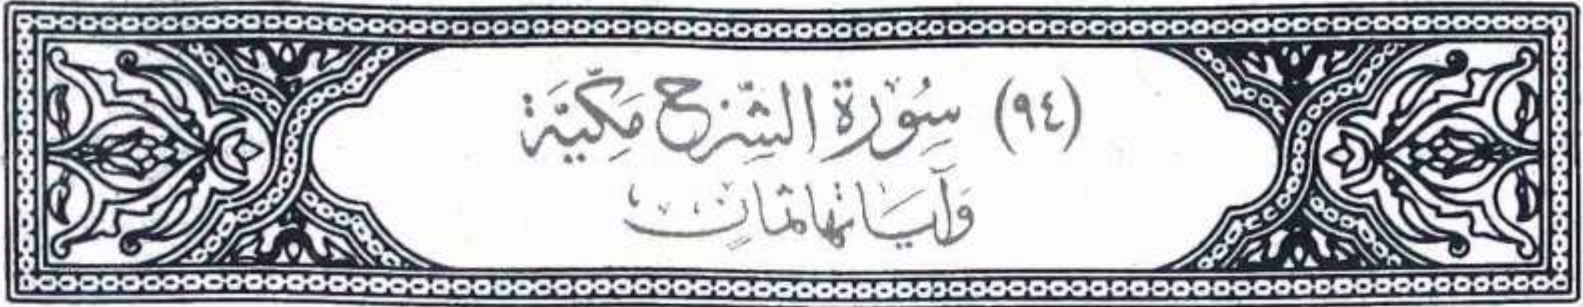 (٩٤) سُورَة الشَّرْح مَكِّيَّة
وَآيَاتهَا ثمَانٍ